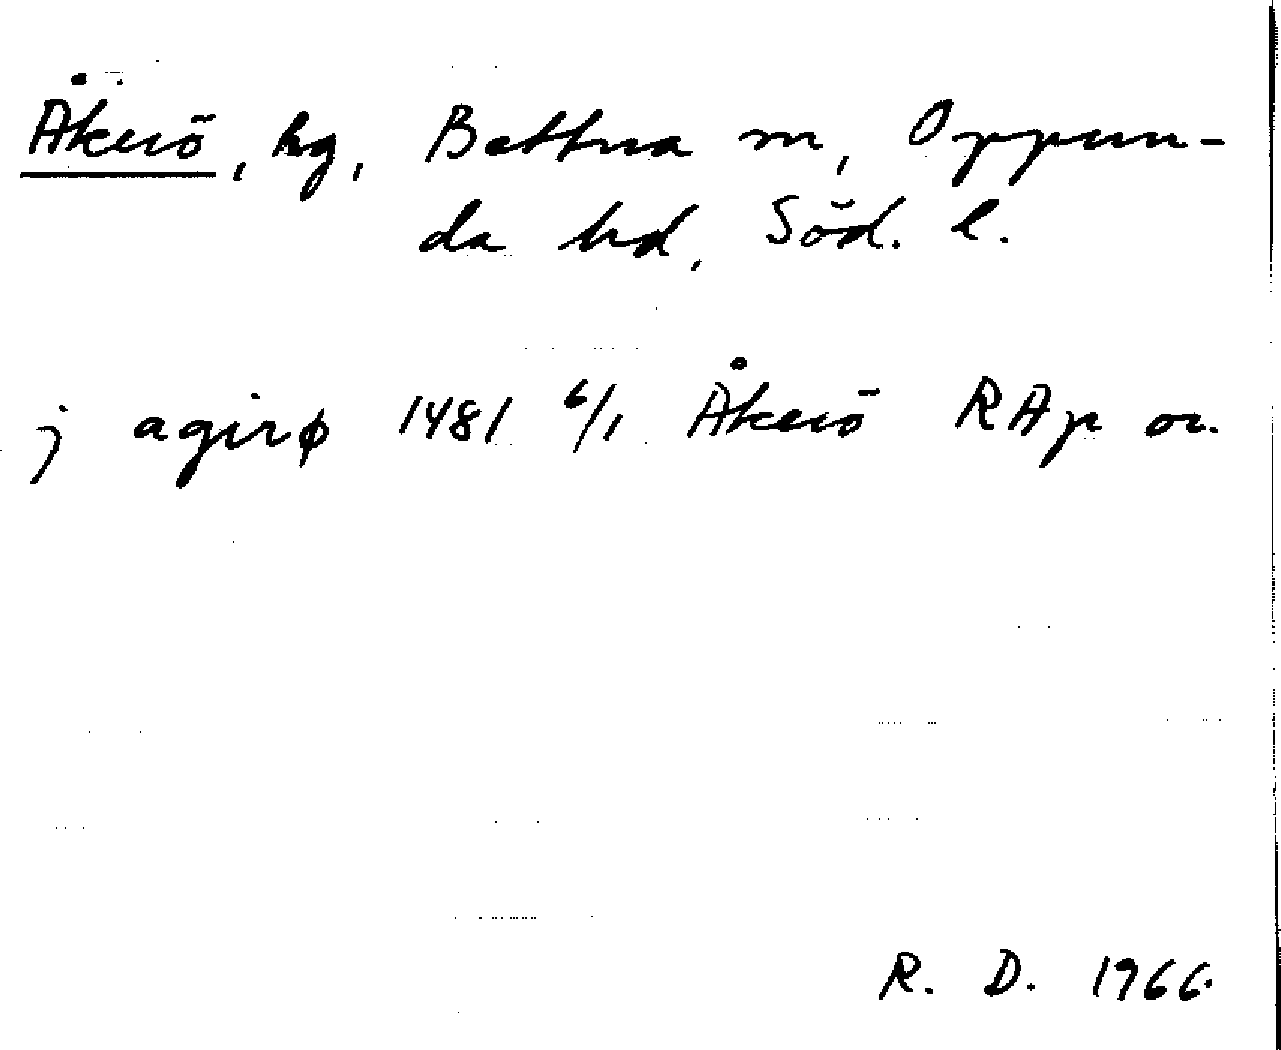 Åkerö, hg, Bettna sn, Oppun-
da hd, Söd. l.
j agirø 1481 6/1 Åkerö RAp or.
R. D. 1966.